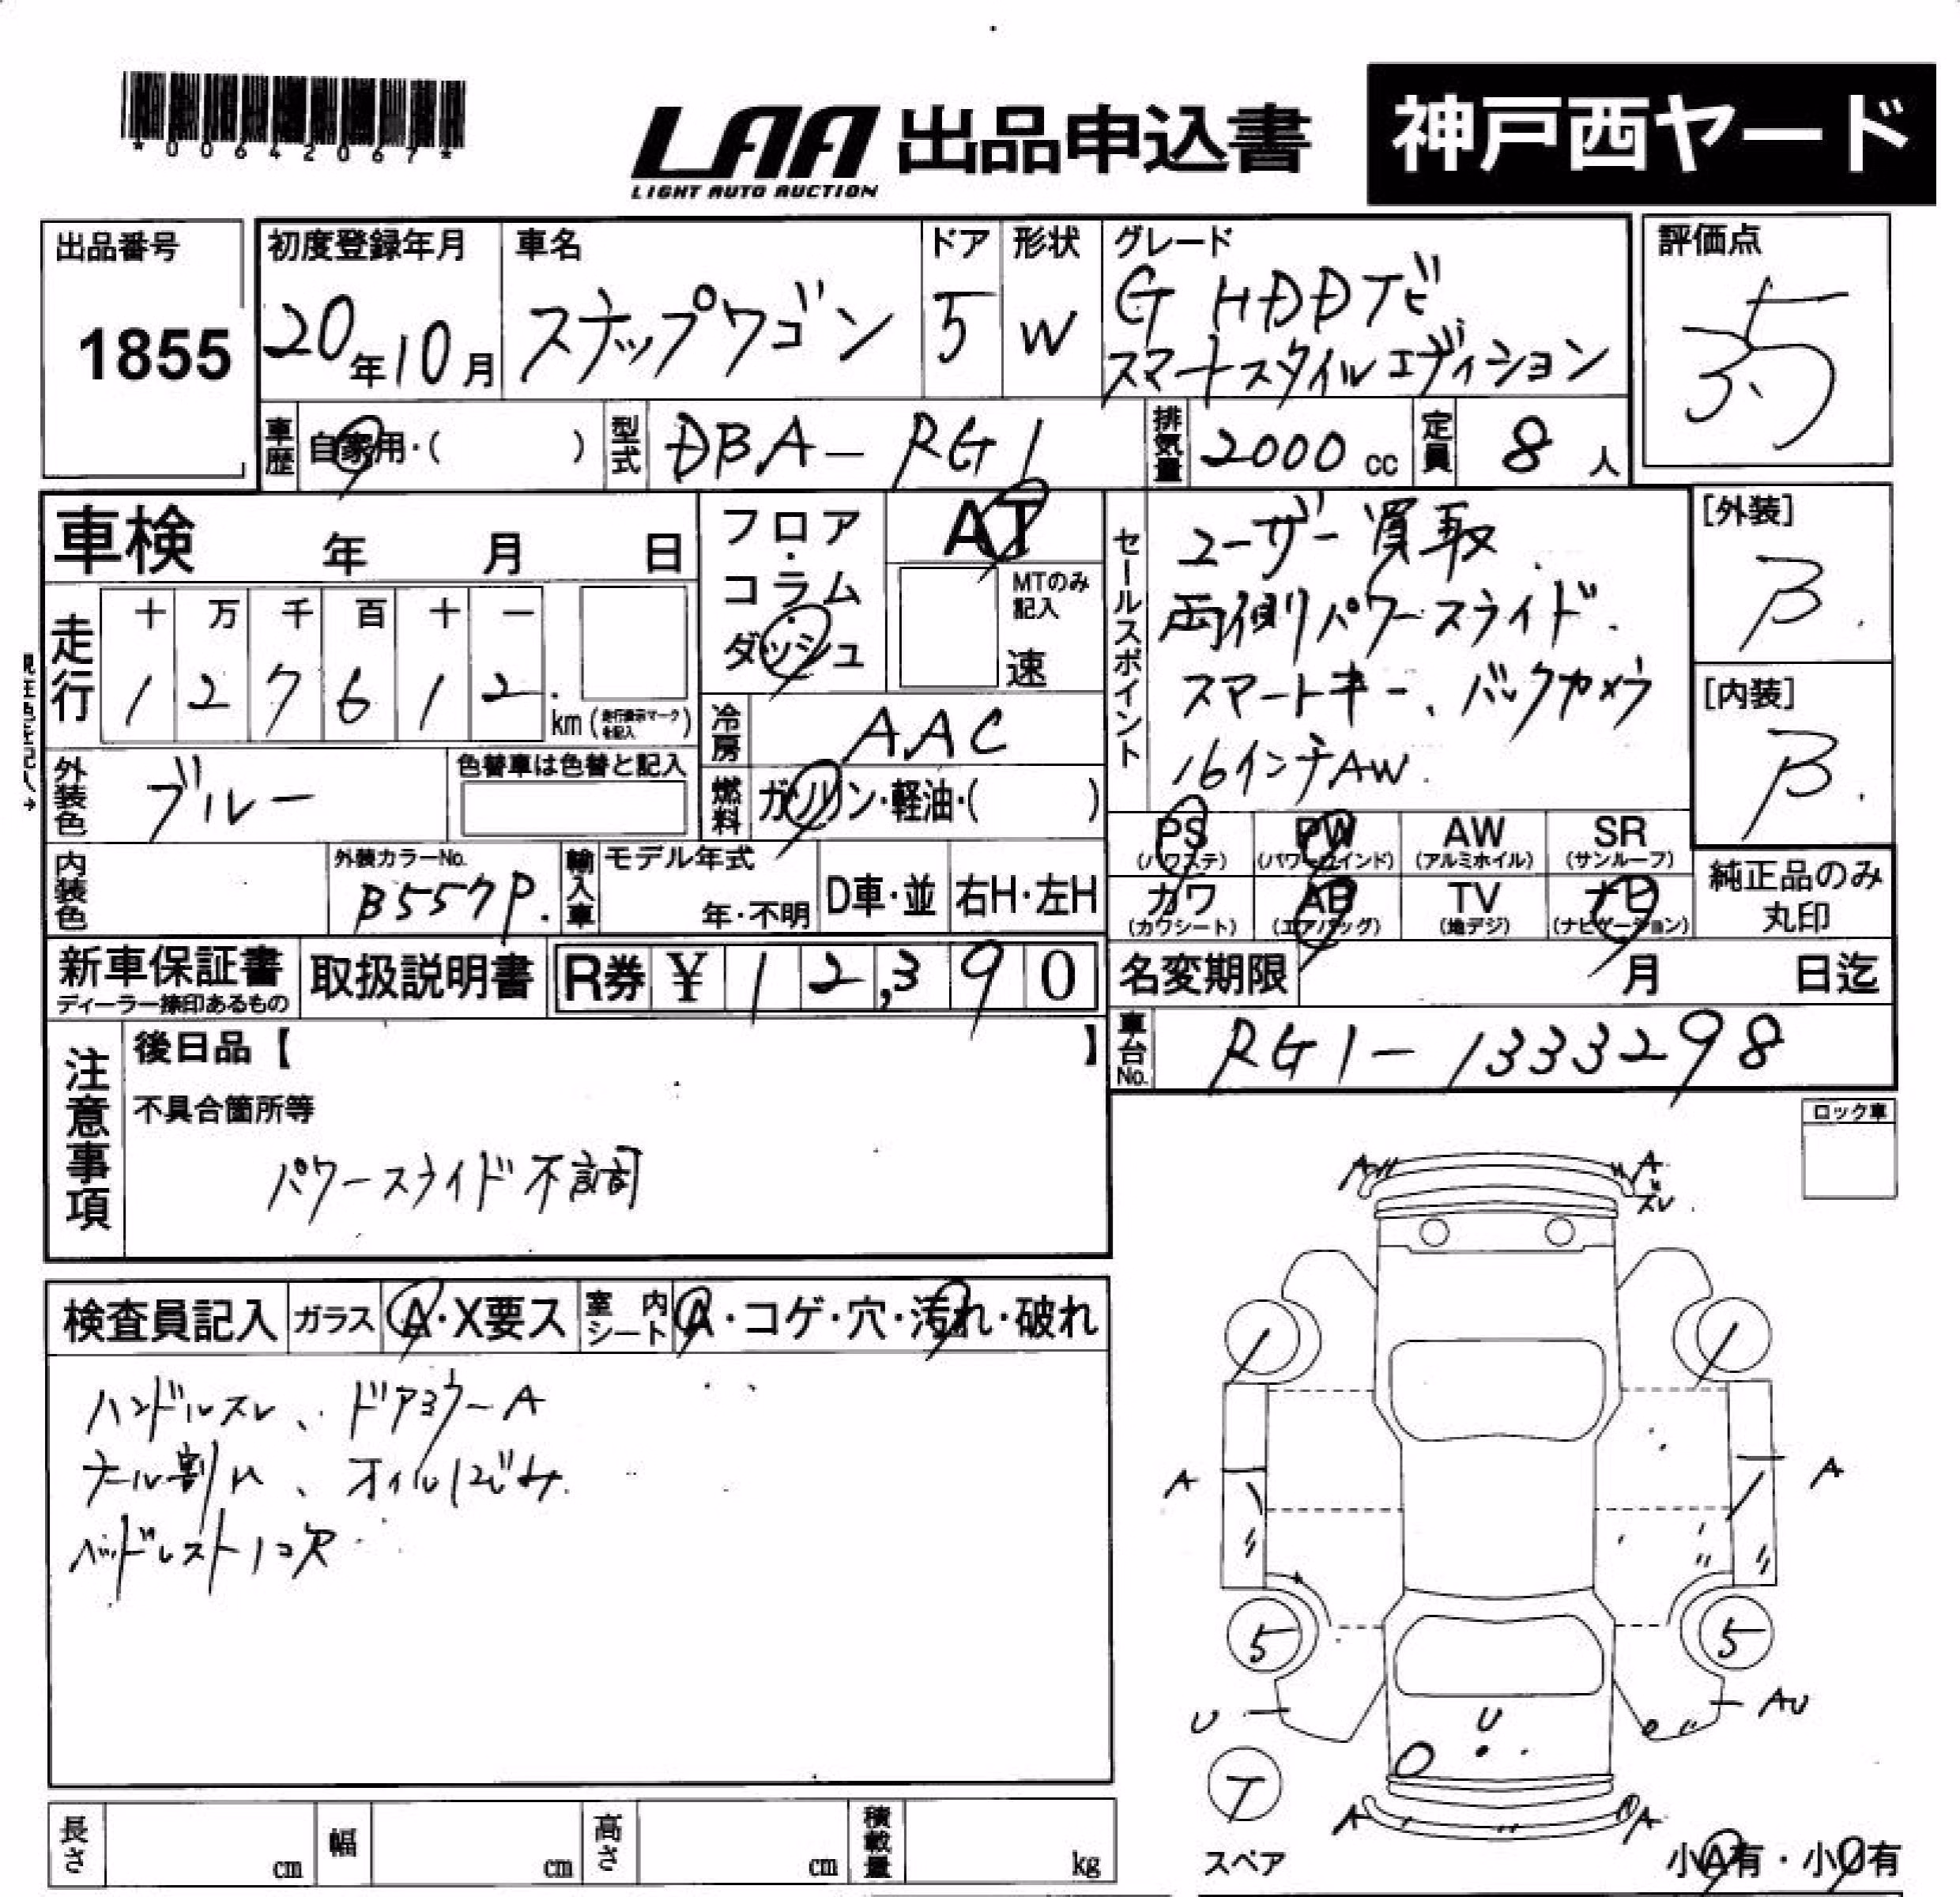 *00642067*
LAA 出品申込書
LIGHT AUTO AUCTION
神戸西ヤード
出品番号
1855
初度登録年月
20年10月
車名
ステップワゴン
ドア
5
形状
W
グレード
G HDDナビ
スマートスタイルエディション
評価点
3.5
車歴
自家用・( )
型式
DBA-RG1
排気量
2000 cc
定員
8人
車検 年 月 日
フロア・コラム・ダッシュ
AT
MTのみ記入
速
セールスポイント
ユーザー買取
両側パワースライド.
スマートキー、バックカメラ
16インチAW.
[外装]
B.
[内装]
B.
走行
十 万 千 百 十 一
1 2 7 6 1 2
km(走行表示マークを記入)
冷房
AAC
燃料
ガソリン・軽油・( )
外装色
ブルー
色替車は色替と記入
内装色
外装カラーNo.
B557P.
輸入車
モデル年式
年・不明
D車・並
右H・左H
PS (パワステ)
PW (パワーウインド)
AW (アルミホイル)
SR (サンルーフ)
カワ (カワシート)
AB (エアバッグ)
TV (地デジ)
ナビ (ナビゲーション)
純正品のみ
丸印
新車保証書
ディーラー捺印あるもの
取扱説明書
R券 ¥ 12,390
名変期限 月 日迄
車台No.
RG1-1333298
注意事項
後日品【 】
不具合箇所等
パワースライド不調
ロック車
検査員記入
ガラス
A・X要ス
室内シート
A・コゲ・穴・汚れ・破れ
ハンドルスレ、ドアミラーA
オイルにじみ
ヘッドレスト1コ欠
A
A
スレ
A
A
5
5
U
AU
U
T
スペア
A
A
小A有・小U有
長さ cm
幅 cm
高さ cm
積載量 kg